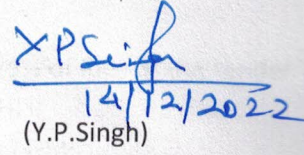 Y P Singh
14/12/2022
(Y.P.Singh)